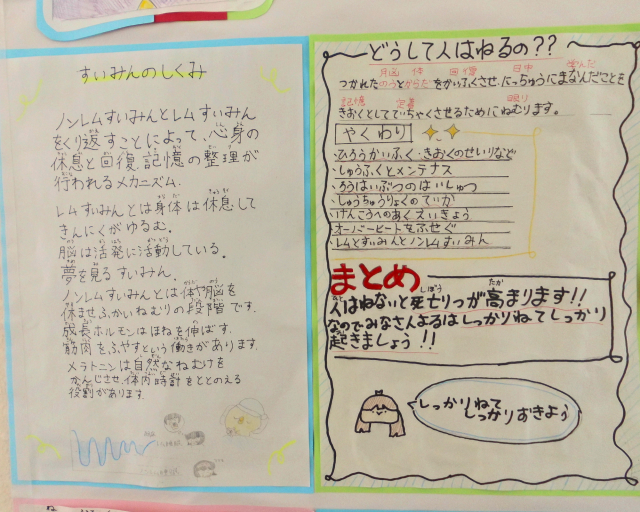 すいみんのしくみ
ノンレムすいみんとレムすいみん
をくり返すことによって、心身の
休息と回復、記憶の整理が
行われるメカニズム.
レムすいみんとは身体は休息して
きんにくがゆるむ.
脳は活発に活動している.
夢を見るすいみん.
ノンレムすいみんとは体や脳を
休ませふかいねむりの段階です.
成長ホルモンはほねを伸ばす.
筋肉をふやすという働きがあります.
メラトニンは自然なねむけを
かんじさせ、体内時計をととのえる
役割があります.
どうして人はねるの??
脳 体 回復 日中 学んだ
つかれたのうとからだをかいふくさせ、にっちゅうにまなんだことを
記憶 定着 眠り
きおくとしてていちゃくさせるためにねむります。
やくわり
・ひろうかいふく・きおくのせいりなど
・しゅうふくとメンテナス
・ろうはいぶつのはいしゅつ
・しゅうちゅうりょくのていか
・けんこうへのあくえいきょう
・オーバーヒートをふせぐ
・レムとすいみんとノンレムすいみん
まとめ
人はねないと死亡りつが高まります!!
なのでみなさんよるはしっかりねてしっかり
起きましょう!!
しっかりねて
しっかりおきよう